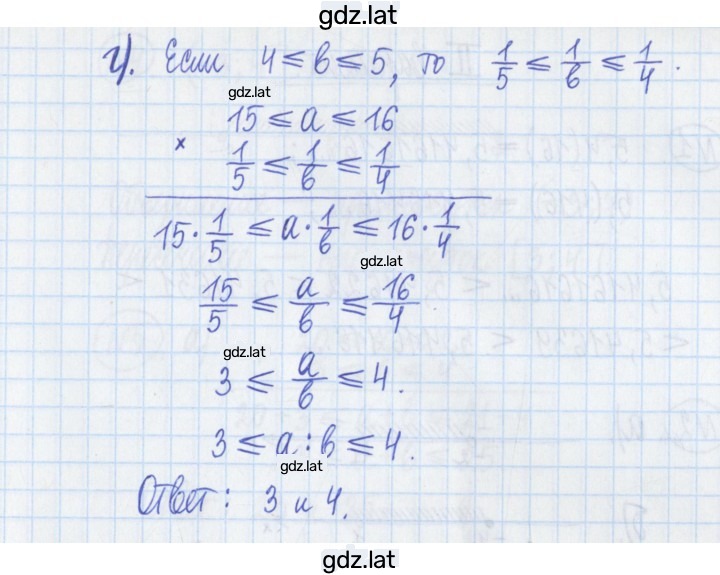 gdz.lat
г). Если 4 ≤ в ≤ 5, то 1/5 ≤ 1/в ≤ 1/4.
gdz.lat
15 ≤ а ≤ 16
× 1/5 ≤ 1/в ≤ 1/4
15 · 1/5 ≤ а · 1/в ≤ 16 · 1/4
gdz.lat
15/5 ≤ а/в ≤ 16/4
gdz.lat
3 ≤ а/в ≤ 4.
3 ≤ а : в ≤ 4.
gdz.lat
Ответ: 3 и 4.
gdz.lat